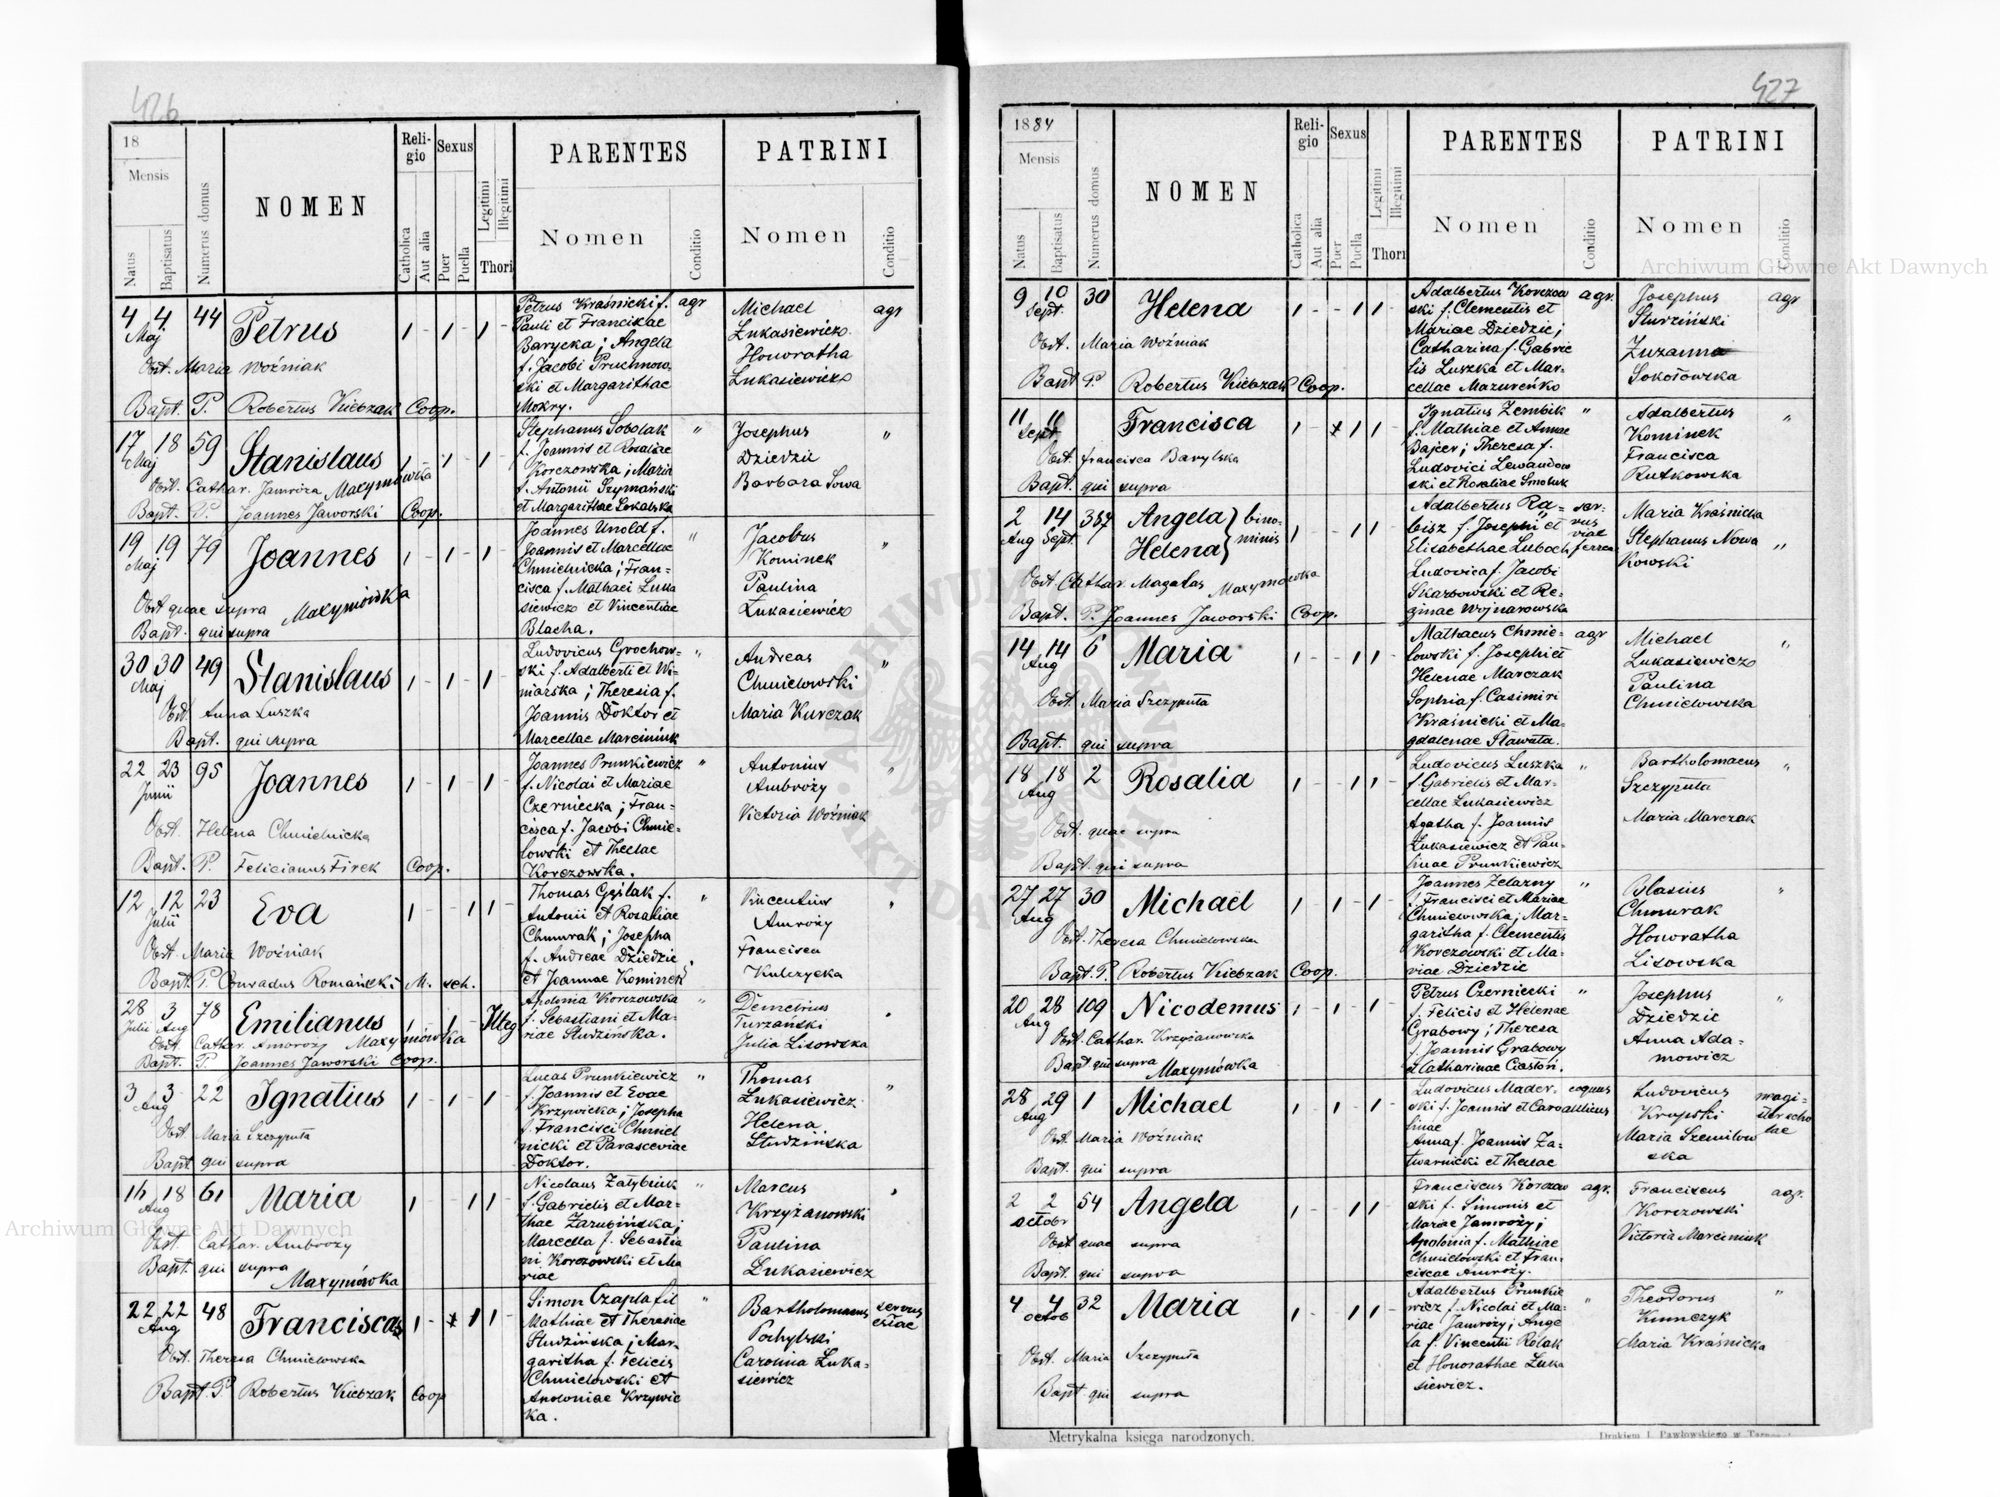 426
18
Mensis
Natus
Baptisatus
Numerus domus
NOMEN
Religio
Catholica
Aut alia
Sexus
Puer
Puella
Legitimi
Illegitimi
Thori
PARENTES
Nomen
Conditio
PATRINI
Nomen
Conditio
4 4 44 Petrus
Maj
Obst. Maria Woźniak
Bapt. P. Robertus Kiebzak Coop.
Petrus Kraśnicki f. agr
Pauli et Franciscae
Barycka; Angela
f. Jacobi Pruchnow
ski et Margarithae
Mokry.
Michael agr
Łukasiewicz
Honoratha
Łukasiewicz
17 18 59 Stanislaus
Maj
Obst. Cathar. Jamroza Maxymówka
Bapt. P. Joannes Jaworski Coop.
Stephanus Sobolak
f. Joannis et Rosaliae
Korczowska; Maria
f. Antonii Szymański
et Margarithae Sokalska
Josephus
Dziedzic
Barbara Sowa
19 19 79 Joannes
Maj
Obst quae supra Maxymówka
Bapt. qui supra
Joannes Unold f.
Joannis et Marcellae
Chmielnicka; Fran=
cisca f. Mathaei Łuka
siewicz et Vincentiae
Blacha.
Jacobus
Kominek
Paulina
Łukasiewicz
30 30 49 Stanislaus
Maj
Obst. Anna Łuszka
Bapt. qui supra
Ludovicus Grochow=
ski f. Adalberti et Wi=
niarska; Theresia f.
Joannis Doktor et
Marcellae Marciniuk
Andreas
Chmielowski
Maria Kurczak
22 23 95 Joannes
Junii
Obst. Helena Chmielnicka
Bapt. P. Felicianus Firek Coop.
Joannes Prunkiewicz
f. Nicolai et Mariae
Czerniecka; Fran=
cisca f. Jacobi Chmie=
lowski et Theclae
Korczowska.
Antonius
Ambroży
Victoria Woźniak
12 12 23 Eva
Julii
Obst. Maria Woźniak
Bapt. P. Conradus Romański M. sch.
Thomas Gęślak f.
Antonii et Rosaliae
Chmurak; Josepha
f. Andreae Dziedzic
et Joannae Kominek
Vincentius
Amroży
Francisca
Kulczycka
28 3 78 Emilianus Illeg
Julii Aug
Obst. Cathar. Amroży Maxymówka
Bapt. P. Joannes Jaworski Coop.
Apolonia Korczowska
f. Sebastiani et Ma=
riae Studzińska.
Demetrius
Turzański
Julia Lisowska
3 3 22 Ignatius
Aug
Obst. Maria Szczypuła
Bapt qui supra
Lucas Prunkiewicz
f. Joannis et Evae
Krzywicka; Josepha
f. Francisci Chmiel
nicki et Parasceviae
Doktor.
Thomas
Łukasiewicz
Helena
Studzińska
16 18 61 Maria
Aug
Obst. Cathar. Ambroży
Bapt. qui supra
Maxymówka
Nicolaus Załybniuk
f. Gabrielis et Mar=
thae Zarubińska;
Marcella f. Sebastia
ni Korczowski et Ma
riae
Marcus
Krzyżanowski
Paulina
Łukasiewicz
22 22 48 Francisca
Aug
Obst. Theresa Chmielowska
Bapt. P. Robertus Kiebzak Coop
Simon Czapla fil
Mathiae et Theresiae
Studzińska; Mar=
garitha f. Felicis
Chmielowski et
Antoniae Krzywic
ka.
Bartholomaeus servus
Pochylski
Carolina Łuka=
siewicz
427
1884
Mensis
Natus
Baptisatus
Numerus domus
NOMEN
Religio
Catholica
Aut alia
Sexus
Puer
Puella
Legitimi
Illegitimi
Thori
PARENTES
Nomen
Conditio
PATRINI
Nomen
Conditio
9 10 30 Helena
Sept.
Obst. Maria Woźniak
Bapt P. Robertus Kiebzak Coop.
Adalbertus Korczow agr.
ski f. Clementis et
Mariae Dziedzic;
Catharina f. Gabrie
lis Łuszka et Mar=
cellae Mazureńko
Josephus agr
Studziński
Zuzanna
Sokołowska
11 11 Francisca
Sept
Obst. Francisca Barylska
Bapt. qui supra
Ignatius Zembik
f. Mathiae et Annae
Bajcer; Theresa f.
Ludovici Lewandow
ski et Rosaliae Smoluk
Adalbertus
Kominek
Francisca
Rutkowska
2 14 387 Angela } bino=
Aug Sept. Helena } minis
Obst. Cathar. Magalas Maxymówka
Bapt. P. Joannes Jaworski Coop.
Adalbertus Ra= ser=
bisz f. Josephi et vus
viae
Elisabethae Luboch, ferrea
Ludovica f. Jacobi
Skarbowski et Re=
ginae Wojnarowska
Maria Kraśnicka
Stephanus Nowa
kowski
14 14 6 Maria
Aug
Obst. Maria Szczypuła
Bapt. qui supra
Mathaeus Chmie= agr
lowski f. Josephi et
Helenae Marczak
Sophia f. Casimiri
Kraśnicki et Ma=
gdalenae Sławata.
Michael
Łukasiewicz
Paulina
Chmielowska
18 18 2 Rosalia
Aug
Obst. quae supra
Bapt. qui supra
Ludovicus Łuszka
f. Gabrielis et Mar=
cellae Łukasiewicz
Agatha f. Joannis
Łukasiewicz et Pau=
linae Prunkiewicz
Bartholomaeus
Szczypuła
Maria Marczak
27 27 30 Michaël
Aug
Obst. Theresa Chmielowska
Bapt. P. Robertus Kiebzak Coop.
Joannes Żelazny
f. Francisci et Mariae
Chmielowska; Mar=
garitha f. Clementis
Korczowski et Ma=
riae Dziedzic
Blasius
Chmurak
Honoratha
Lisowska
20 28 109 Nicodemus
Aug
Obst. Cathar. Krzyżanowska
Bapt qui supra Maxymówka
Petrus Czerniecki
f. Felicis et Helenae
Grabowy; Theresa
f. Joannis Grabowy
et Catharinae Ciastoń.
Josephus
Dziedzic
Anna Ada=
mowicz
28 29 1 Michael
Aug
Obst. Maria Woźniak
Bapt. qui supra
Ludovicus Mader= coquus
ski f. Joannis et Caro
linae
Anna f. Joannis Za=
twarnicki et Theclae
Ludovicus magi=
Krupski ster scho
lae
Maria Szemilow
ska
2 2 54 Angela
Octobr
Obst quae supra
Bapt. qui supra
Franciscus Korczow agr.
ski f. Simonis et
Mariae Jamroży;
Apolonia f. Mathiae
Chmielowski et Fran=
ciscae Amroży.
Franciscus agr.
Korczowski
Victoria Marciniuk
4 4 32 Maria
Octob
Obst. Maria Szczypuła
Bapt qui supra
Adalbertus Prunkie
wicz f. Nicolai et Ma=
riae Jamroży; Ange
la f. Vincentii Rolak
et Honorathae Łuka
siewicz.
Theodorus
Kimczyk
Maria Kraśnicka
Metrykalna księga narodzonych.
Drukiem J. Pawłowskiego w
Archiwum Główne Akt Dawnych
Archiwum Główne Akt Dawnych
ARCHIWUM GŁÓWNE AKT DAWNYCH